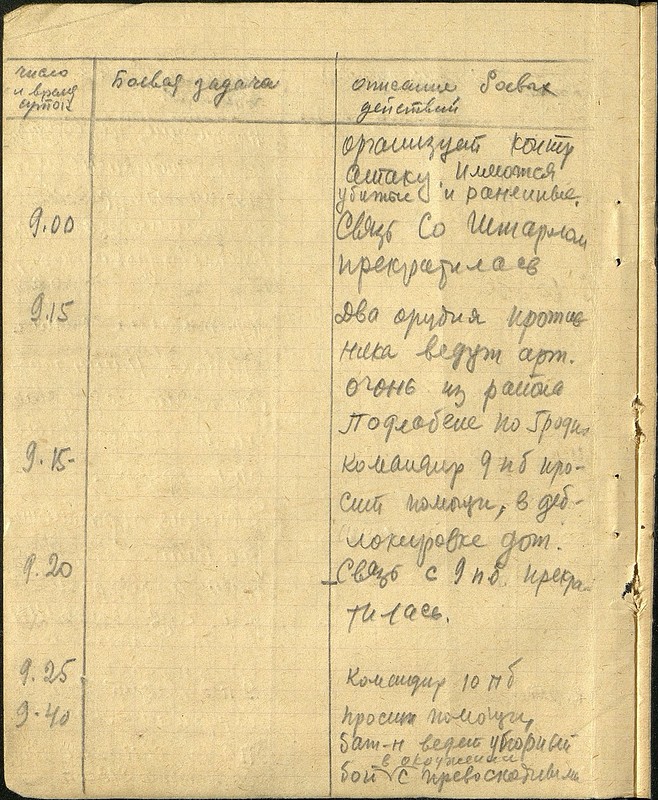 число
и время
суток
Боевая задача
описание боевых
действий
организует контр
атаку. Имеются
убитые и раненные.
9.00
Связь Со Штаром
прекратилась
9.15
Два орудия против
ника ведут арт.
огонь из района
Подлабене по Гродн
9.15
командир 9 пб про-
сит помощи, в деб-
локировке дот.
9.20
Связь с 9 пб. прекра-
тилась.
9.25
командир 10 пб
9.40
просит помощи,
бат-н ведет упорный
в окружении
бой с превосходящими